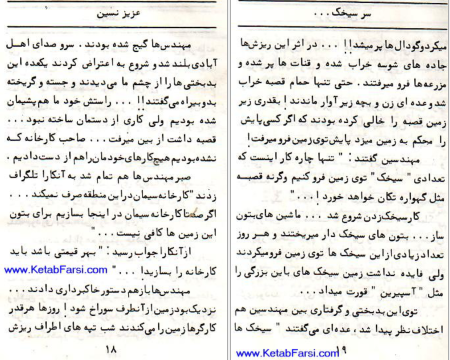 عزیز نسین
مهندس‌ها گیج شده بودند. سرو صدای اهـل
آبادی بلند شد و شروع به اعتراض کردند یکعده این
بدبختی‌ها را از چشم ما می‌دیدند و جسته و گریخته
بدوبیراه می‌گفتند!! ... راستش خود ما هم پشیمان
شده بودیم ولی کاری از دستمان ساخته نبود...
قصبه داشت از بین میرفت... صاحب کارخانه کـه
نشده بودیم هیچ کارهای خودمان راهم از دست دادیم.
صبر مهندس‌ها هم تمام شد به آنکارا تلگراف
زدند "کارخانه سیمان در این منطقه صرف نمیکند ...
اگر صدتا کارخانه سیمان در اینجا بسازیم برای بتون
این زمین ها کافی نیست ..."
از آنکارا جواب رسید: "بهر قیمتی باشد باید
کارخانه را بسازید! ..."
www.KetabFarsi.com
مهندس‌ها باز هم دستور خاکبرداری دادند...
نزدیک بود زمین از آنطرف سوراخ شود! روزها هرقدر
کارگرها زمین را می‌کندند شب تپه های اطراف ریزش
۱۸
سر سیخک ...
میکرد و گودال‌ها پر میشد!! ... در اثر این ریزش‌ها
جاده های شوسه خراب شده و قنات ها پر شده و
مزرعه‌ها فرو میرفتند. حتی تنها حمام قصبه خراب
شد و عده ای زن و بچه زیر آوار ماندند! بقدری زیر
زمین قصبه را خالی کرده بودند که اگر کسی پایش
را محکم به زمین میزد پایش توی زمین فرو میرفت!
مهندسین گفتند: "تنها چاره کار اینست که
تعدادی "سیخک" توی زمین فرو کنیم وگرنه قصبـه
مثل گهواره تکان خواهد خورد! ..."
کار سیخک زدن شروع شد ... ماشین های بتون
ساز... بتون های سیخک دار میریختند و هـر روز
تعداد زیادی از این سیخک ها توی زمین فرو میکردند
ولی فایده نداشت زمین سیخک های باین بزرگی را
مثل "آسپیرین" قورت میداد...
توی این بدبختی و گرفتاری بین مهندسین هم
اختلاف نظر پیدا شد، عده‌ای می‌گفتند "سیخک ها
۱۹
www.KetabFarsi.com